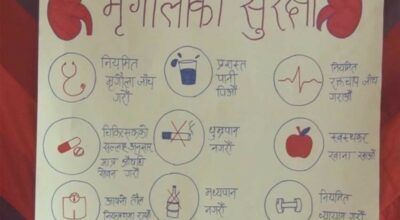 मृगौलाको सुरक्षा
नियमित
मृगौला जाँच
गरौं
प्रशस्त
पानी
पिऔं
नियमित
रक्तचाप जाँच
गराऔं
चिकित्सकको
सल्लाह अनुसार
मात्र औषधी
सेवन गरौं
धुम्रपान
नगरौं
स्वस्थकर
खाना खाऔं
आफ्नो तौल
नियन्त्रणमा राखौं
मध्यपान
नगरौं
नियमित
व्यायाम गरौं